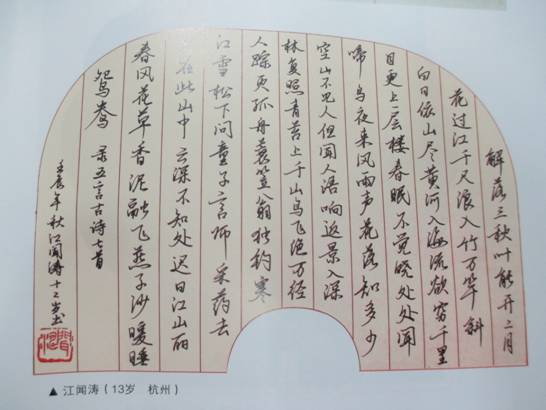 解落三秋叶能开二月
花过江千尺浪入竹万竿斜
白日依山尽黄河入海流欲穷千里
目更上层楼春眠不觉晓处处闻
啼鸟夜来风雨声花落知多少
空山不见人但闻人语响返景入深
林复照青苔上千山鸟飞绝万径
人踪灭孤舟蓑笠翁独钓寒
江雪松下问童子言师采药去
只在此山中云深不知处迟日江山丽
春风花草香泥融飞燕子沙暖睡
鸳鸯 录五言古诗七首
壬辰年秋江闻涛十二岁书
▲ 江闻涛（13岁 杭州）